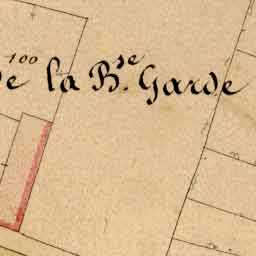 100
de la B.se Garde